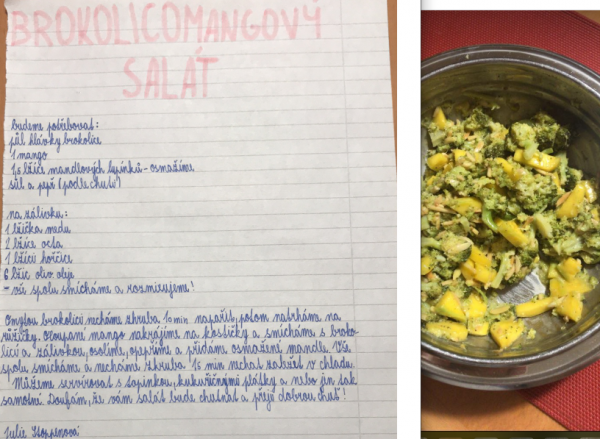 BROKOLICOMANGOVÝ
SALÁT
budeme potřebovat:
půl hlávky brokolice
1 mango
1,5 lžíce mandlových lupínků - osmažíme
sůl a pepř (podle chuti)
na zálivku:
1 lžička medu
2 lžíce octa
1 lžíci hořčice
6 lžic oliv. oleje
- vše spolu smícháme a rozmixujeme!
Omytou brokolici necháme zhruba 10 min napařit, potom natrháme na
růžičky. Oloupané mango nakrájíme na kostičky a smícháme s broko-
licí a zálivkou, osolíme, opepříme a přidáme osmažené mandle. Vše
spolu smícháme a necháme zhruba 15 min nechat zaležet v chladu.
Můžeme servírovat s topinkou, kukuřičnými plátky a nebo jin tak
samotné. Doufám, že vám salát bude chutnat a přeji dobrou chuť!
Julie